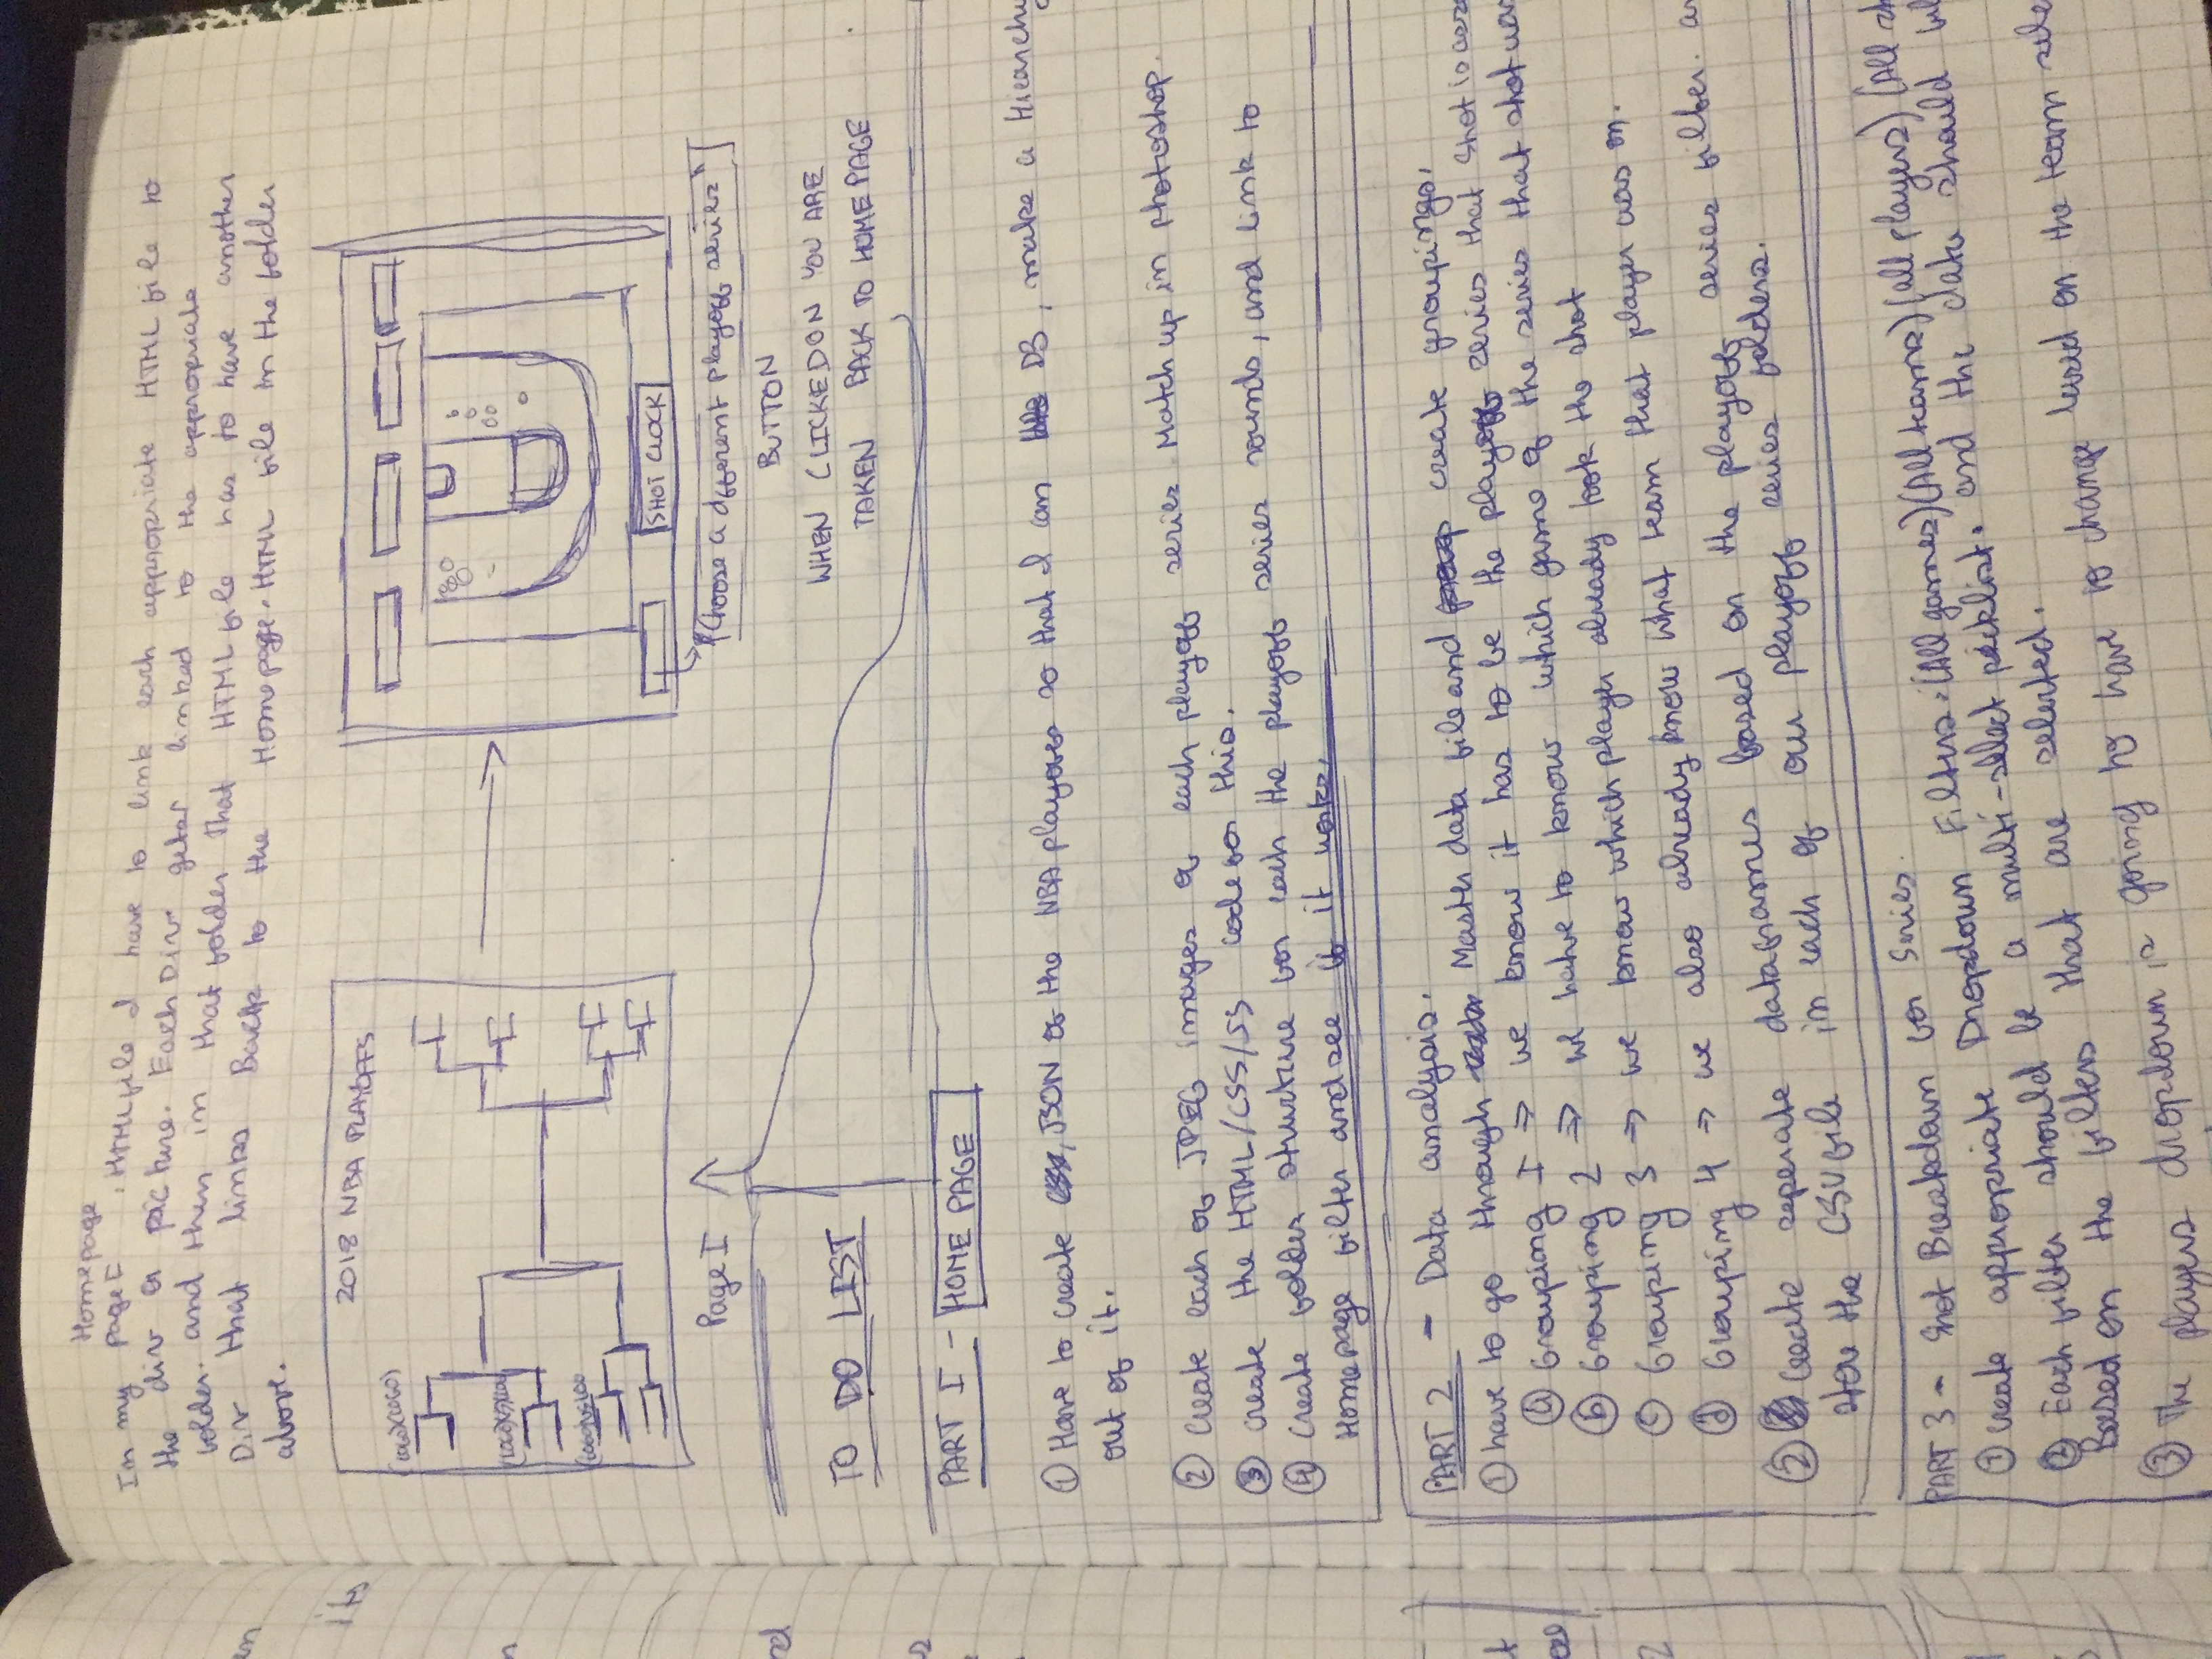 Homepage
In my page I .HTML file I have to link each appropriate HTML file to
the div or picture. Each Div getst linked to the appropriate
folder. and then in that folder that HTML file has to have another
Div that links Back to the Homepage.HTML file in the folder
above.
2018 NBA PLAYOFFS
(LOGO)(LOGO)
SHOT CLOCK
"Choose a different playoff series"
Page I
BUTTON
WHEN CLICKED ON YOU ARE
TAKEN BACK TO HOME PAGE
TO DO LIST
PART I - HOME PAGE
① Have to create JSON of the NBA playoffs so that I can D3, make a Hierarchy
out of it.
② Create each of JPEG images of each playoff series Match up in photoshop.
③ Create the HTML/CSS/JS code for this.
④ Create folder structure for each the playoff series rounds, and link to
Homepage filter and see if it works.
PART 2 - Data analysis.
① have to go through Master data file and create groupings.
ⓐ Grouping I => we know it has to be the playoff series that shot is
ⓑ Grouping 2 => we have to know which game of the series that shot was
ⓒ Grouping 3 => we know which player already took the shot
ⓓ Grouping 4 => we also already know what team that player was on.
② Create seperate dataframes based on the playoff series filter.
store the CSV file in each of our playoff series folders.
PART 3 - Shot Breakdown for Series.
① Create appropriate Dropdown Filters. (All games)(All teams)(all players)(All
② Each filter should be a multi-select picklist. and the data should
Based on the filters that are selected.
③ The players dropdown is going to have to change based on the team